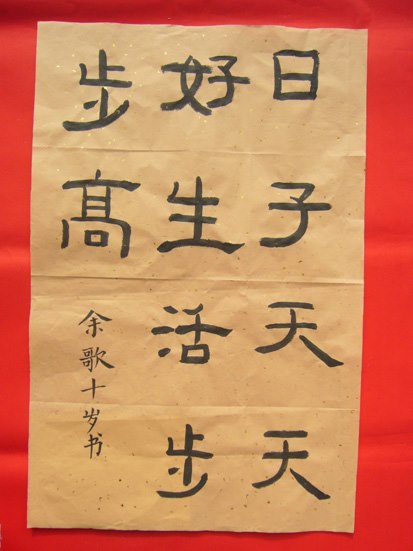 日子天天
好生活步
步高
余歌十岁书